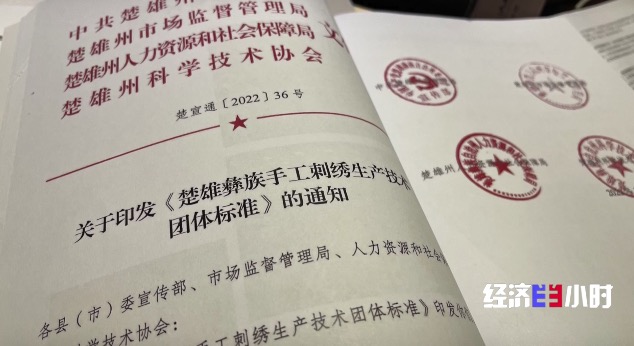 中共楚雄州
楚雄州市场监督管理局
楚雄州人力资源和社会保障局
楚雄州科学技术协会
文
楚宣通〔2022〕36号
关于印发《楚雄彝族手工刺绣生产技术
团体标准》的通知
各县（市）委宣传部、市场监督管理局、人力资源和社会
科学技术协会：
手工刺绣生产技术团体标准》印发给
中
楚雄州人
经济半小时